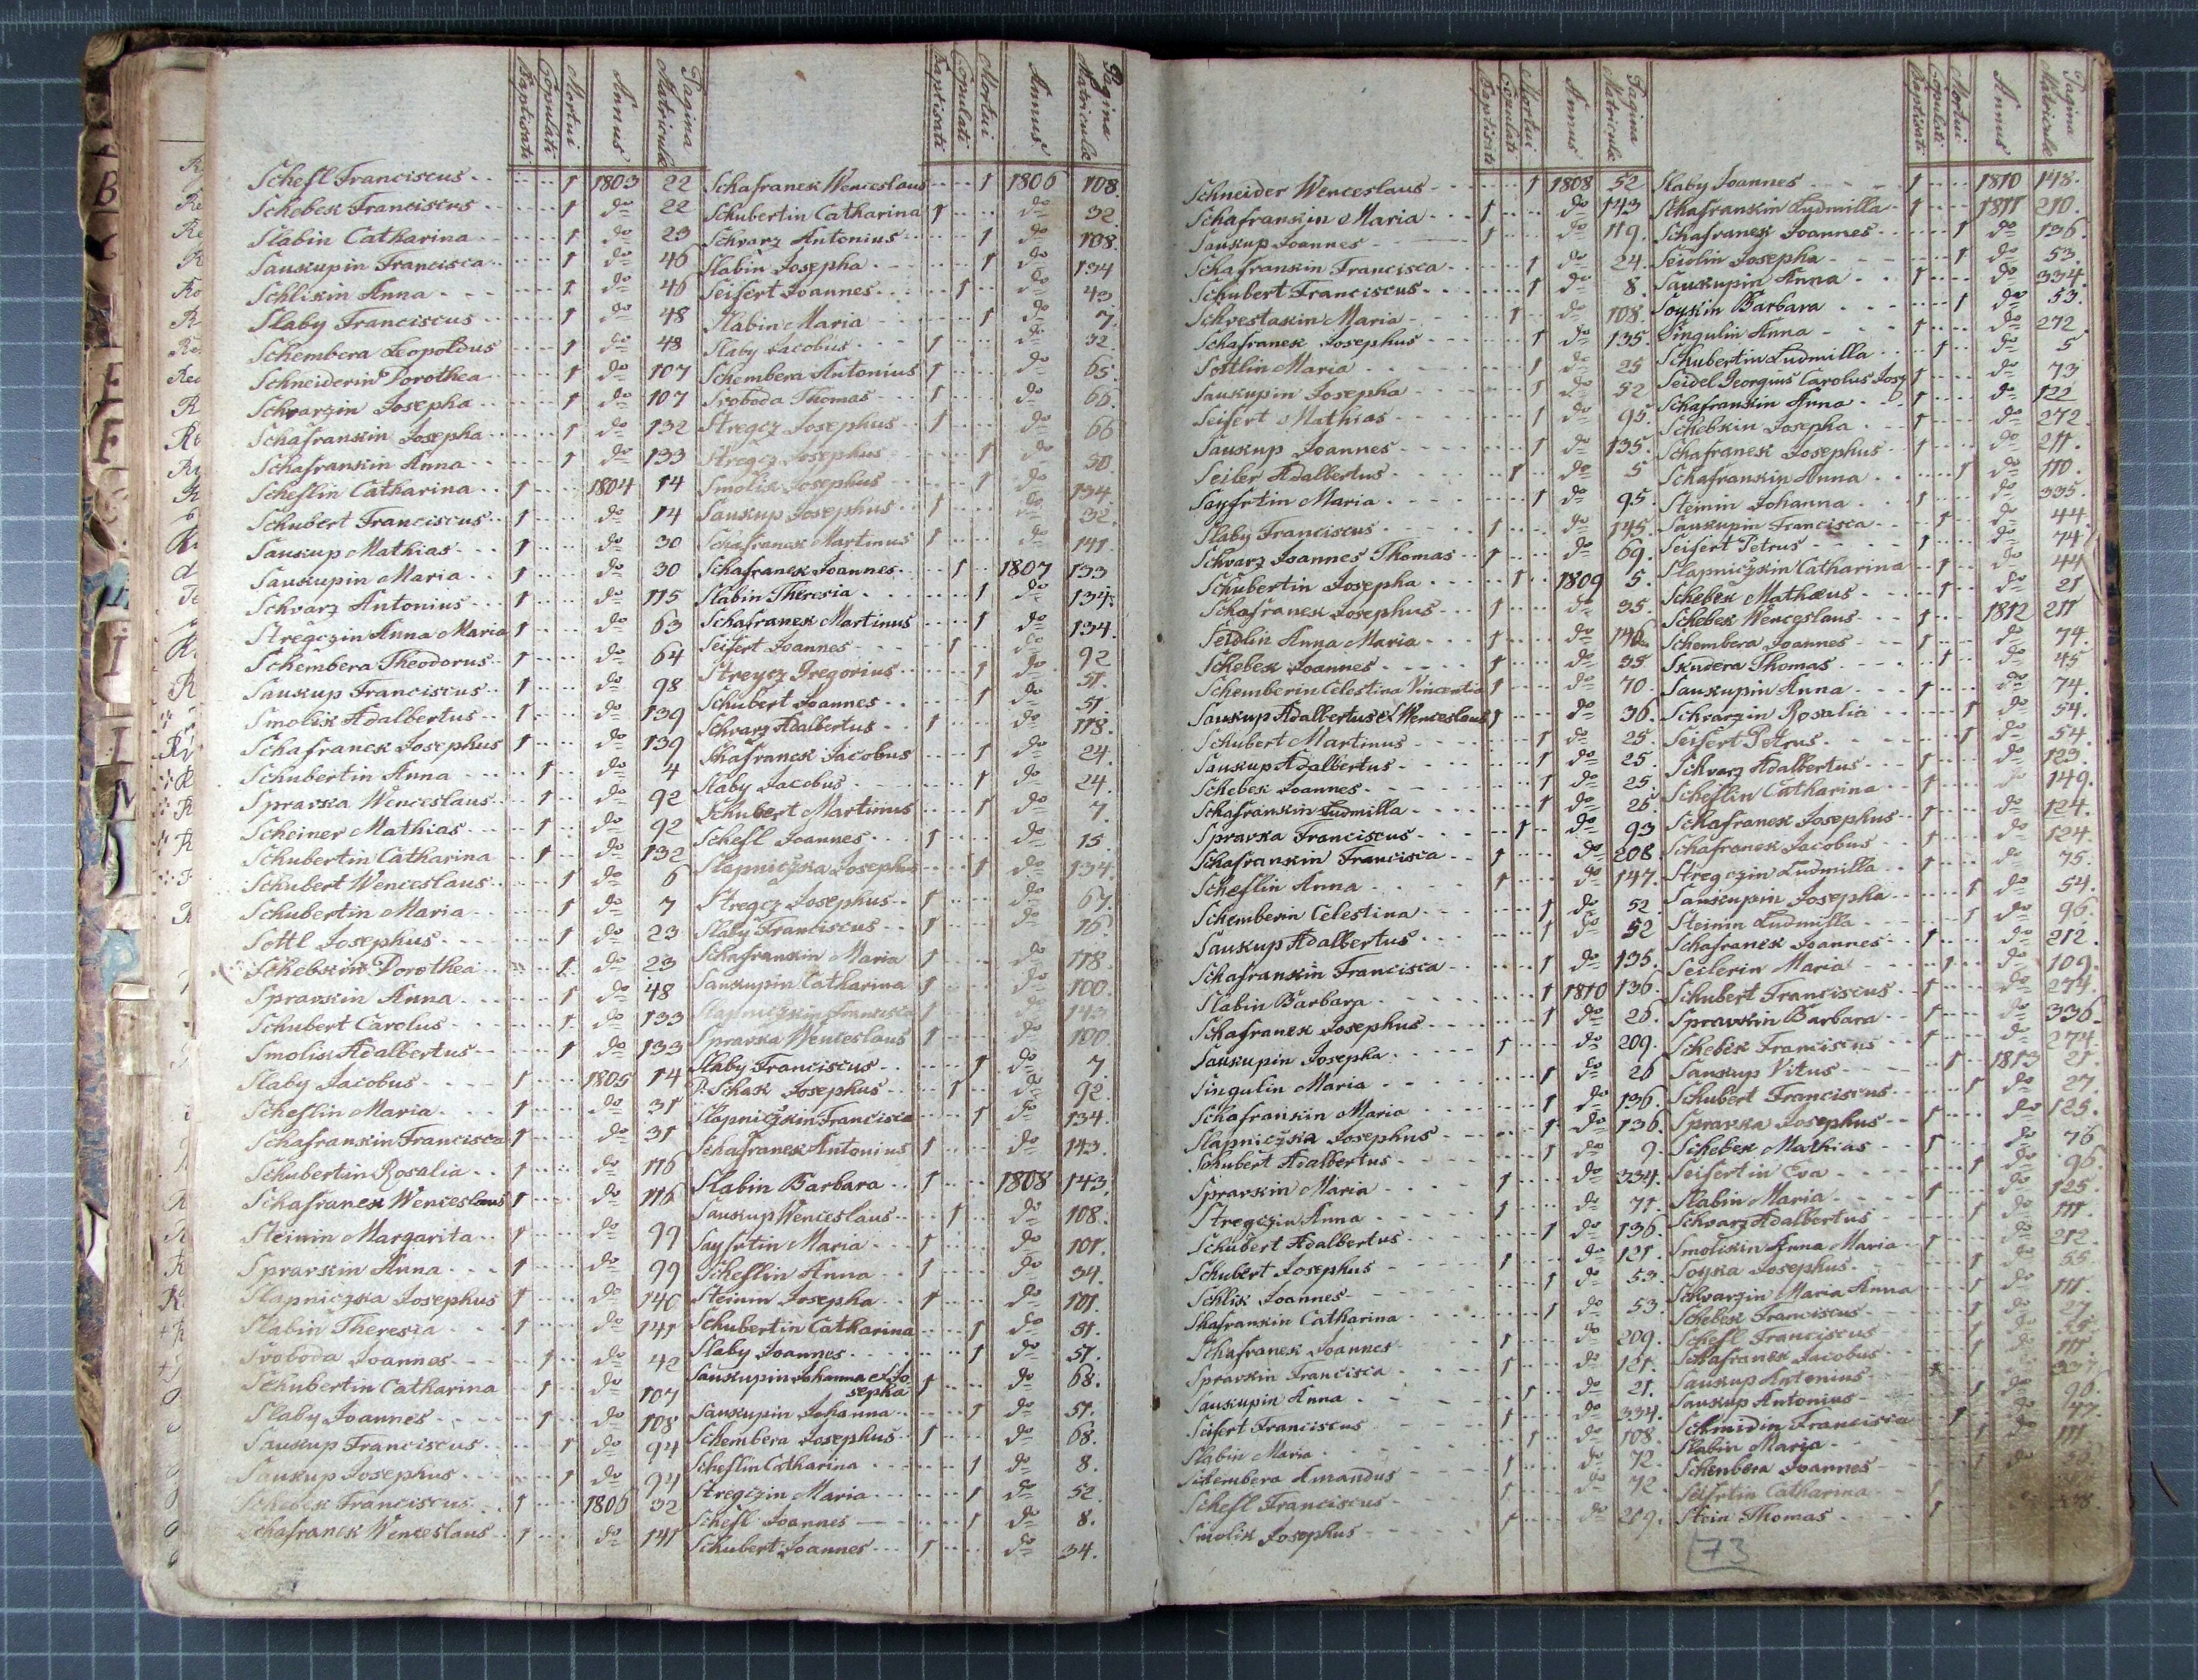 Baptisati Copulati Mortui Annus Pagina Matriculæ
Schefl Franciscus 1 1803 22
Schebek Franciscus 1 do 22
Slabin Catharina 1 do 23
Saukupin Francisca 1 do 46
Schlikin Anna 1 do 46
Slaby Franciscus 1 do 48
Schembera Leopoldus 1 do 48
Schneiderin Dorothea 1 do 107
Schwarzin Josepha 1 do 107
Schafrankin Josepha 1 do 132
Schafrankin Anna 1 do 133
Scheflin Catharina 1 1804 14
Schubert Franciscus 1 do 14
Saukup Mathias 1 do 30
Saukupin Maria 1 do 30
Schwarz Antonius 1 do 115
Stregczin Anna Maria 1 do 63
Schembera Theodorus 1 do 64
Saukup Franciscus 1 do 98
Smolik Adalbertus 1 do 139
Schafranek Josephus 1 do 139
Schubertin Anna 1 do 4
Sprawka Wenceslaus 1 do 92
Scheiner Mathias 1 do 92
Schubertin Catharina 1 do 132
Schubert Wenceslaus 1 do 6
Schubertin Maria 1 do 7
Sottl Josephus 1 do 23
Schebkin Dorothea 1 do 23
Sprawkin Anna 1 do 48
Schubert Carolus 1 do 133
Smolik Adalbertus 1 do 133
Slaby Jacobus 1 1805 14
Scheflin Maria 1 do 31
Schafrankin Francisca 1 do 31
Schubertin Rosalia 1 do 116
Schafranek Wenceslaus 1 do 116
Steinin Margarita 1 do 99
Sprawkin Anna 1 do 99
Slapniczka Josephus 1 do 140
Slabin Theresia 1 do 141
Swoboda Joannes 1 do 42
Schubertin Catharina 1 do 107
Slaby Joannes 1 do 108
Saukup Franciscus 1 do 94
Saukup Josephus 1 do 94
Schebek Franciscus 1 1806 32
Schafranek Wenceslaus 1 do 141
Baptisati Copulati Mortui Annus Pagina Matriculæ
Schafranek Wenceslaus 1 1806 108.
Schubertin Catharina 1 do 32
Schwarz Antonius 1 do 108.
Slabin Josepha 1 do 134
Seifert Joannes 1 do 43
Slabin Maria 1 do 7.
Slaby Jacobus 1 do 32.
Schembera Antonius 1 do 65.
Swoboda Thomas 1 do 66.
Stregcz Josephus 1 do 66
Stregcz Josephus 1 do 50.
Smolik Josephus 1 do 134.
Saukup Josephus 1 do 32.
Schafranek Martinus 1 do 141.
Schafranek Joannes 1 1807 133
Slabin Theresia 1 do 134.
Schafranek Martinus 1 do 134.
Seifert Joannes 1 do 92
Streycz Gregorius 1 do 51.
Schubert Joannes 1 do 51.
Schwarz Adalbertus 1 do 118.
Shafranek Jacobus 1 do 24.
Slaby Jacobus 1 do 24.
Schubert Martinus 1 do 7
Schefl Joannes 1 do 15.
Slapniczka Josephus 1 do 134.
Stregcz Josephus 1 do 67.
Slaby Franciscus 1 do 16
Schafrankin Maria 1 do 118.
Saukupin Catharina 1 do 100.
Slapniczkin Francisca 1 do 143
Sprawka Wenceslaus 1 do 100.
Slaby Franciscus 1 do 7.
P. Schak Josephus 1 do 92.
Slapniczkin Francisca 1 do 134.
Schafranek Antonius 1 do 143.
Slabin Barbara 1 1808 143.
Saukup Wenceslaus 1 do 108.
Sayfrtin Maria 1 do 101.
Scheflin Anna 1 do 34.
Steinin Josepha 1 do 101.
Schubertin Catharina 1 do 51.
Slaby Joannes 1 do 51.
Saukupin Johanna et Jo-
sepha 1 do 68.
Saukupin Johanna 1 do 51.
Schembera Josephus 1 do 68.
Scheflin Catharina 1 do 8.
Stregczin Maria 1 do 52
Schefl Joannes 1 do 8.
Schubert Joannes 1 do 34.
Baptisati Copulati Mortui Annus Pagina Matriculæ
Schneider Wenceslaus 1 1808 52
Schafrankin Maria 1 do 143
Saukup Joannes 1 do 119.
Schafrankin Francisca 1 do 24.
Schubert Franciscus 1 do 8.
Schwestakin Maria 1 do 108
Schafranek Josephus 1 do 135.
Sottlin Maria 1 do 25
Saukupin Josepha 1 do 52
Seifert Mathias 1 do 95.
Saukup Joannes 1 do 135.
Seiler Adalbertus 1 do 5
Sayfrtin Maria 1 do 95.
Slaby Franciscus 1 do 145.
Schwarz Joannes Thomas 1 do 69.
Schubertin Josepha 1 1809 5.
Schafranek Josephus 1 do 35.
Seidlin Anna Maria 1 do 146
Schebek Joannes 1 do 35
Schemberin Celestina Vincentia 1 do 70.
Saukup Adalbertus et Wenceslaus 1 do 36.
Schubert Martinus 1 do 25.
Saukup Adalbertus 1 do 25.
Schebek Joannes 1 do 25.
Schafrankin Ludmilla 1 do 26
Sprawka Franciscus 1 do 93
Schafrankin Francisca 1 do 208
Scheflin Anna 1 do 147.
Schemberin Celestina 1 do 52
Saukup Adalbertus 1 do 52
Schafrankin Francisca 1 do 135.
Slabin Barbara 1 1810 136.
Schafranek Josephus 1 do 26.
Saukupin Josepha 1 do 209.
Singulin Maria 1 do 26
Schafrankin Maria 1 do 136.
Slapniczka Josephus 1 do 136
Schubert Adalbertus 1 do 9.
Sprawkin Maria 1 do 334.
Stregczin Anna 1 do 71.
Schubert Adalbertus 1 do 136.
Schubert Josephus 1 do 121.
Schlik Joannes 1 do 53.
Shafrankin Catharina 1 do 53.
Schafranek Joannes 1 do 209.
Sprawkin Francisca 1 do 121.
Saukupin Anna 1 do 21.
Seifert Franciscus 1 do 334.
Slabin Maria 1 do 108.
Schembera Amandus 1 do 72.
Schefl Franciscus 1 do 72.
Smolik Josephus 1 do 209.
Baptisati Copulati Mortui Annus Pagina Matriculæ
Slaby Joannes 1 1810 148.
Schafrankin Ludmilla 1 1811 210.
Schafranek Joannes 1 do 136.
Seidlin Josepha 1 do 53.
Saukupin Anna 1 do 334.
Soykin Barbara 1 do 53.
Singulin Anna 1 do 272
Schubertin Ludmilla 1 do 5
Seidel Georgius Carolus Josep 1 do 73
Schafrankin Anna 1 do 122
Schebkin Josepha 1 do 272
Schafranek Josephus 1 do 211.
Schafrankin Anna 1 do 110.
Steinin Johanna 1 do 335.
Saukupin Francisca 1 do 44.
Seifert Petrus 1 do 74.
Slapniczkin Catharina 1 do 44
Schebek Mathæus 1 do 21
Schebek Wenceslaus 1 1812 211
Schembera Joannes 1 do 74.
Skudera Thomas 1 do 45
Saukupin Anna 1 do 74.
Schwarzin Rosalia 1 do 54.
Seifert Petrus 1 do 54.
Schwarz Adalbertus 1 do 123.
Scheflin Catharina 1 do 149.
Schafranek Josephus 1 do 124.
Schafranek Jacobus 1 do 124.
Stregczin Ludmilla 1 do 75.
Saukupin Josepha 1 do 54.
Steinin Ludmilla 1 do 96.
Schafranek Joannes 1 do 212.
Seilerin Maria 1 do 109.
Schubert Franciscus 1 do 274.
Sprawkin Barbara 1 do 336.
Schebek Franciscus 1 do 274.
Saukup Vitus 1 1813 21.
Schubert Franciscus 1 do 27
Sprawka Josephus 1 do 125.
Schebek Mathias 1 do 76
Seifertin Eva 1 do 96.
Slabin Maria 1 do 125.
Schwarz Adalbertus 1 do 111.
Smolikin Anna Maria 1 do 212.
Soyka Josephus 1 do 55
Schwarzin Maria Anna 1 do 111.
Schebek Franciscus 1 do 27
Schefl Franciscus 1 do
Schafranek Jacobus 1 do 111.
Saukup Antonius 337
Saukup Antonius 1 do 96.
Schmidin Francisca 1 do 47.
Slabin Maria 1 do 111
Schembera Joannes 1 do
Seifrtin Catharina 1
Stein Thomas 1 338.
73
B
E
F
I